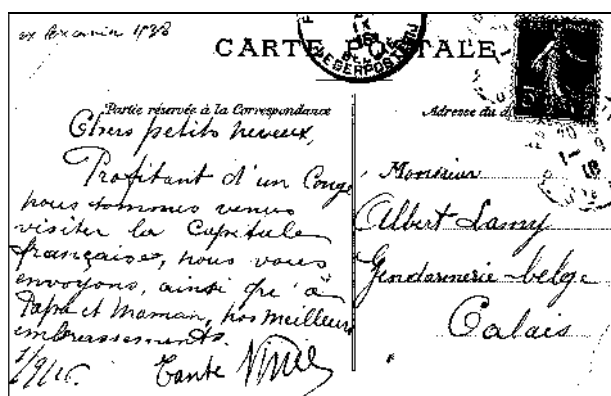 1938
CARTE POSTALE
Partie réservée à la Correspondance
Adresse du d
Chers petits neveux,
Profitant d'un Congé
nous sommes venus
visiter la Capitale
française, nous vous
envoyons, ainsi qu'à
Papa et Maman, nos meilleurs
embrassements.
1/9/16. Tante
Monsieur
Albert Lamy
Gendarmerie belge
Calais